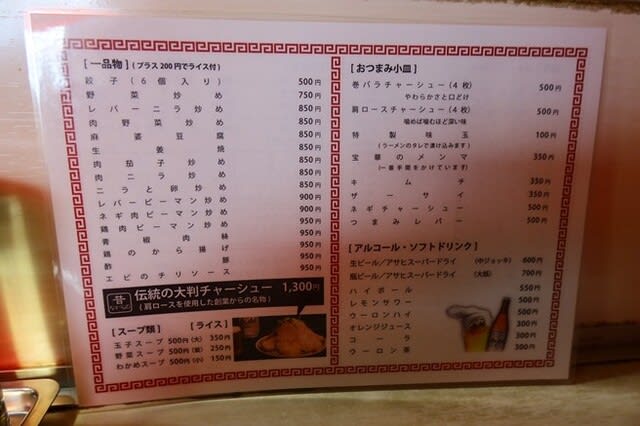 [一品物] (プラス200円でライス付)
餃子(6個入り) 500円
野菜炒め 750円
レバーニラ炒め 850円
肉野菜炒め 850円
麻婆豆腐 850円
生姜焼 850円
肉茄子炒め 850円
肉ニラ炒め 850円
ニラと卵炒め 850円
レバーピーマン炒め 900円
ネギ肉ピーマン炒め 900円
鶏肉ピーマン炒め 950円
青椒肉絲 950円
鶏のから揚げ 950円
酢豚 950円
エビのチリソース 950円
昔 伝統の大判チャーシュー 1,300円
(肩ロースを使用した創業からの名物)
[スープ類] [ライス]
玉子スープ 500円 (大) 350円
野菜スープ 500円 (並) 250円
わかめスープ 500円 (小) 150円
[おつまみ小皿]
巻バラチャーシュー(4枚) 500円
やわらかさと口どけ
肩ロースチャーシュー(4枚) 500円
噛めば噛むほど深い味
特製味玉 100円
(ラーメンのタレで漬け込みます)
宝華のメンマ 350円
(一番手間をかけています)
キムチ 350円
ザーサイ 350円
ネギチャーシュー 500円
つまみレバー 500円
[アルコール・ソフトドリンク]
生ビール/アサヒスーパードライ (中ジョッキ) 600円
瓶ビール/アサヒスーパードライ (大瓶) 700円
ハイボール 550円
レモンサワー 500円
ウーロンハイ 500円
オレンジジュース 300円
コーラ 300円
ウーロン茶 300円